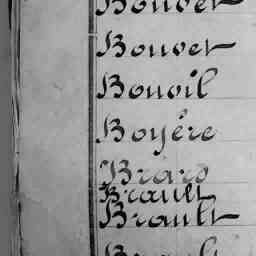 Bouvet
Bouvet
Bouvil
Boyére
Brard
Brault
Brault